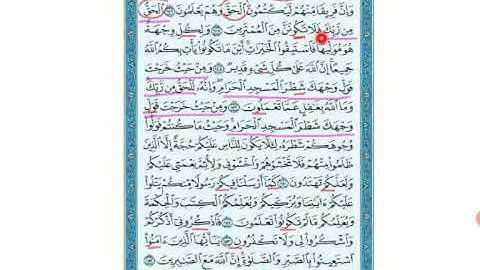 وَإِنَّ فَرِيقًا مِّنْهُمْ لَيَكْتُمُونَ الْحَقَّ وَهُمْ يَعْلَمُونَ ١٤٦ الْحَقُّ
مِن رَّبِّكَ فَلَا تَكُونَنَّ مِنَ الْمُمْتَرِينَ ١٤٧ وَلِكُلٍّ وِجْهَةٌ
هُوَ مُوَلِّيهَا فَاسْتَبِقُوا الْخَيْرَاتِ أَيْنَ مَا تَكُونُوا يَأْتِ بِكُمُ اللَّهُ
جَمِيعًا إِنَّ اللَّهَ عَلَىٰ كُلِّ شَيْءٍ قَدِيرٌ ١٤٨ وَمِنْ حَيْثُ خَرَجْتَ
فَوَلِّ وَجْهَكَ شَطْرَ الْمَسْجِدِ الْحَرَامِ وَإِنَّهُ لَلْحَقُّ مِن رَّبِّكَ
وَمَا اللَّهُ بِغَافِلٍ عَمَّا تَعْمَلُونَ ١٤٩ وَمِنْ حَيْثُ خَرَجْتَ فَوَلِّ
وَجْهَكَ شَطْرَ الْمَسْجِدِ الْحَرَامِ وَحَيْثُ مَا كُنتُمْ فَوَلُّوا
وُجُوهَكُمْ شَطْرَهُ لِئَلَّا يَكُونَ لِلنَّاسِ عَلَيْكُمْ حُجَّةٌ إِلَّا الَّذِينَ
ظَلَمُوا مِنْهُمْ فَلَا تَخْشَوْهُمْ وَاخْشَوْنِي وَلِأُتِمَّ نِعْمَتِي عَلَيْكُمْ
وَلَعَلَّكُمْ تَهْتَدُونَ ١٥٠ كَمَا أَرْسَلْنَا فِيكُمْ رَسُولًا مِّنكُمْ يَتْلُو
عَلَيْكُمْ آيَاتِنَا وَيُزَكِّيكُمْ وَيُعَلِّمُكُمُ الْكِتَابَ وَالْحِكْمَةَ
وَيُعَلِّمُكُم مَّا لَمْ تَكُونُوا تَعْلَمُونَ ١٥١ فَاذْكُرُونِي أَذْكُرْكُمْ
وَاشْكُرُوا لِي وَلَا تَكْفُرُونِ ١٥٢ يَا أَيُّهَا الَّذِينَ آمَنُوا
اسْتَعِينُوا بِالصَّبْرِ وَالصَّلَاةِ إِنَّ اللَّهَ مَعَ الصَّابِرِينَ ١٥٣